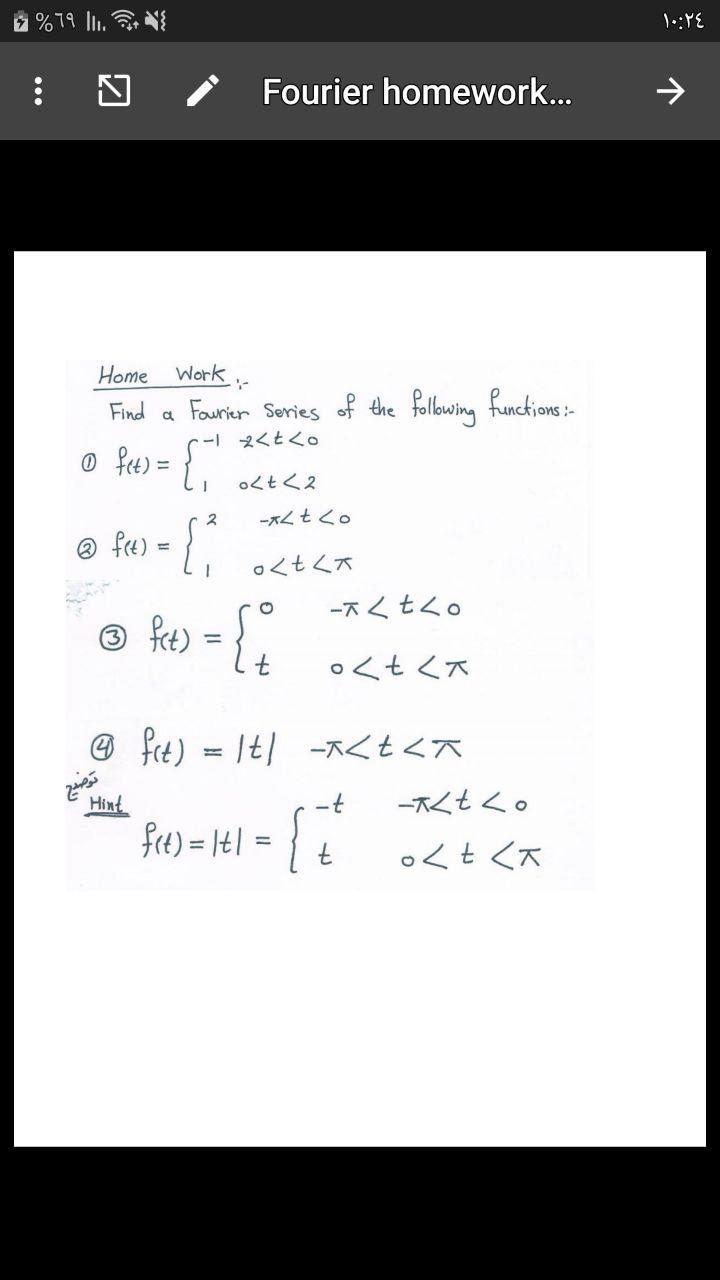 %٦٩ ١٠:٢٤
Fourier homework...
Home Work :-
Find a Fourier Series of the following functions:-
① f(t) = { -1 -2<t<0
1 0<t<2
② f(t) = { 2 -π<t<0
1 0<t<π
③ f(t) = { 0 -π<t<0
t 0<t<π
④ f(t) = |t| -π<t<π
توضيح
Hint
f(t) = |t| = { -t -π<t<0
t 0<t<π